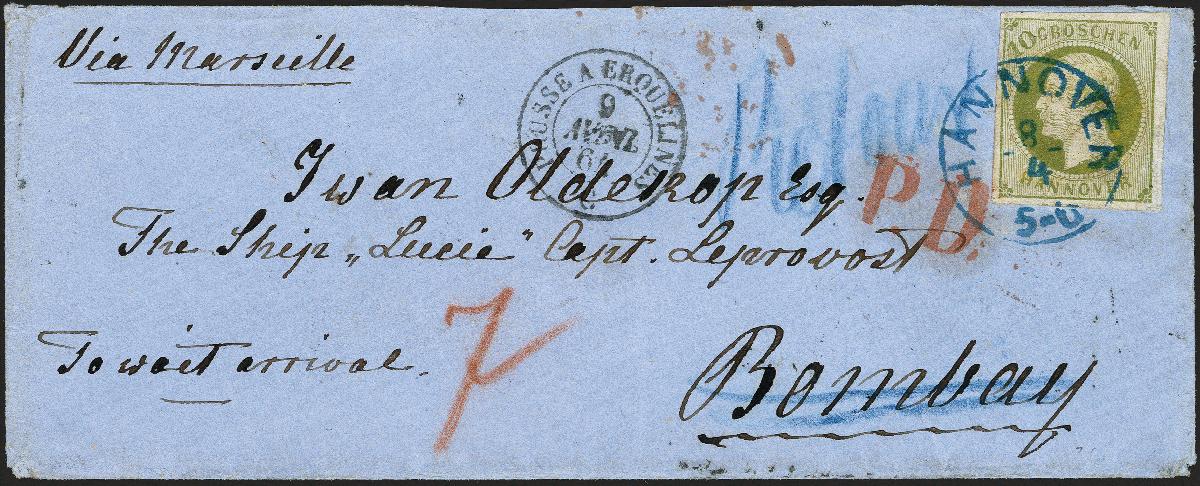 Via Marseille
10 GROSCHEN
HANNOVER
HANNOVER
8
4
5-6
PRUSSE A ERQUELINES
9
AVRIL
62
P.D.
Iwan Oldekop Esq.
The Ship „Lucie" Capt. Leprovost
7
To wait arrival.
Bombay